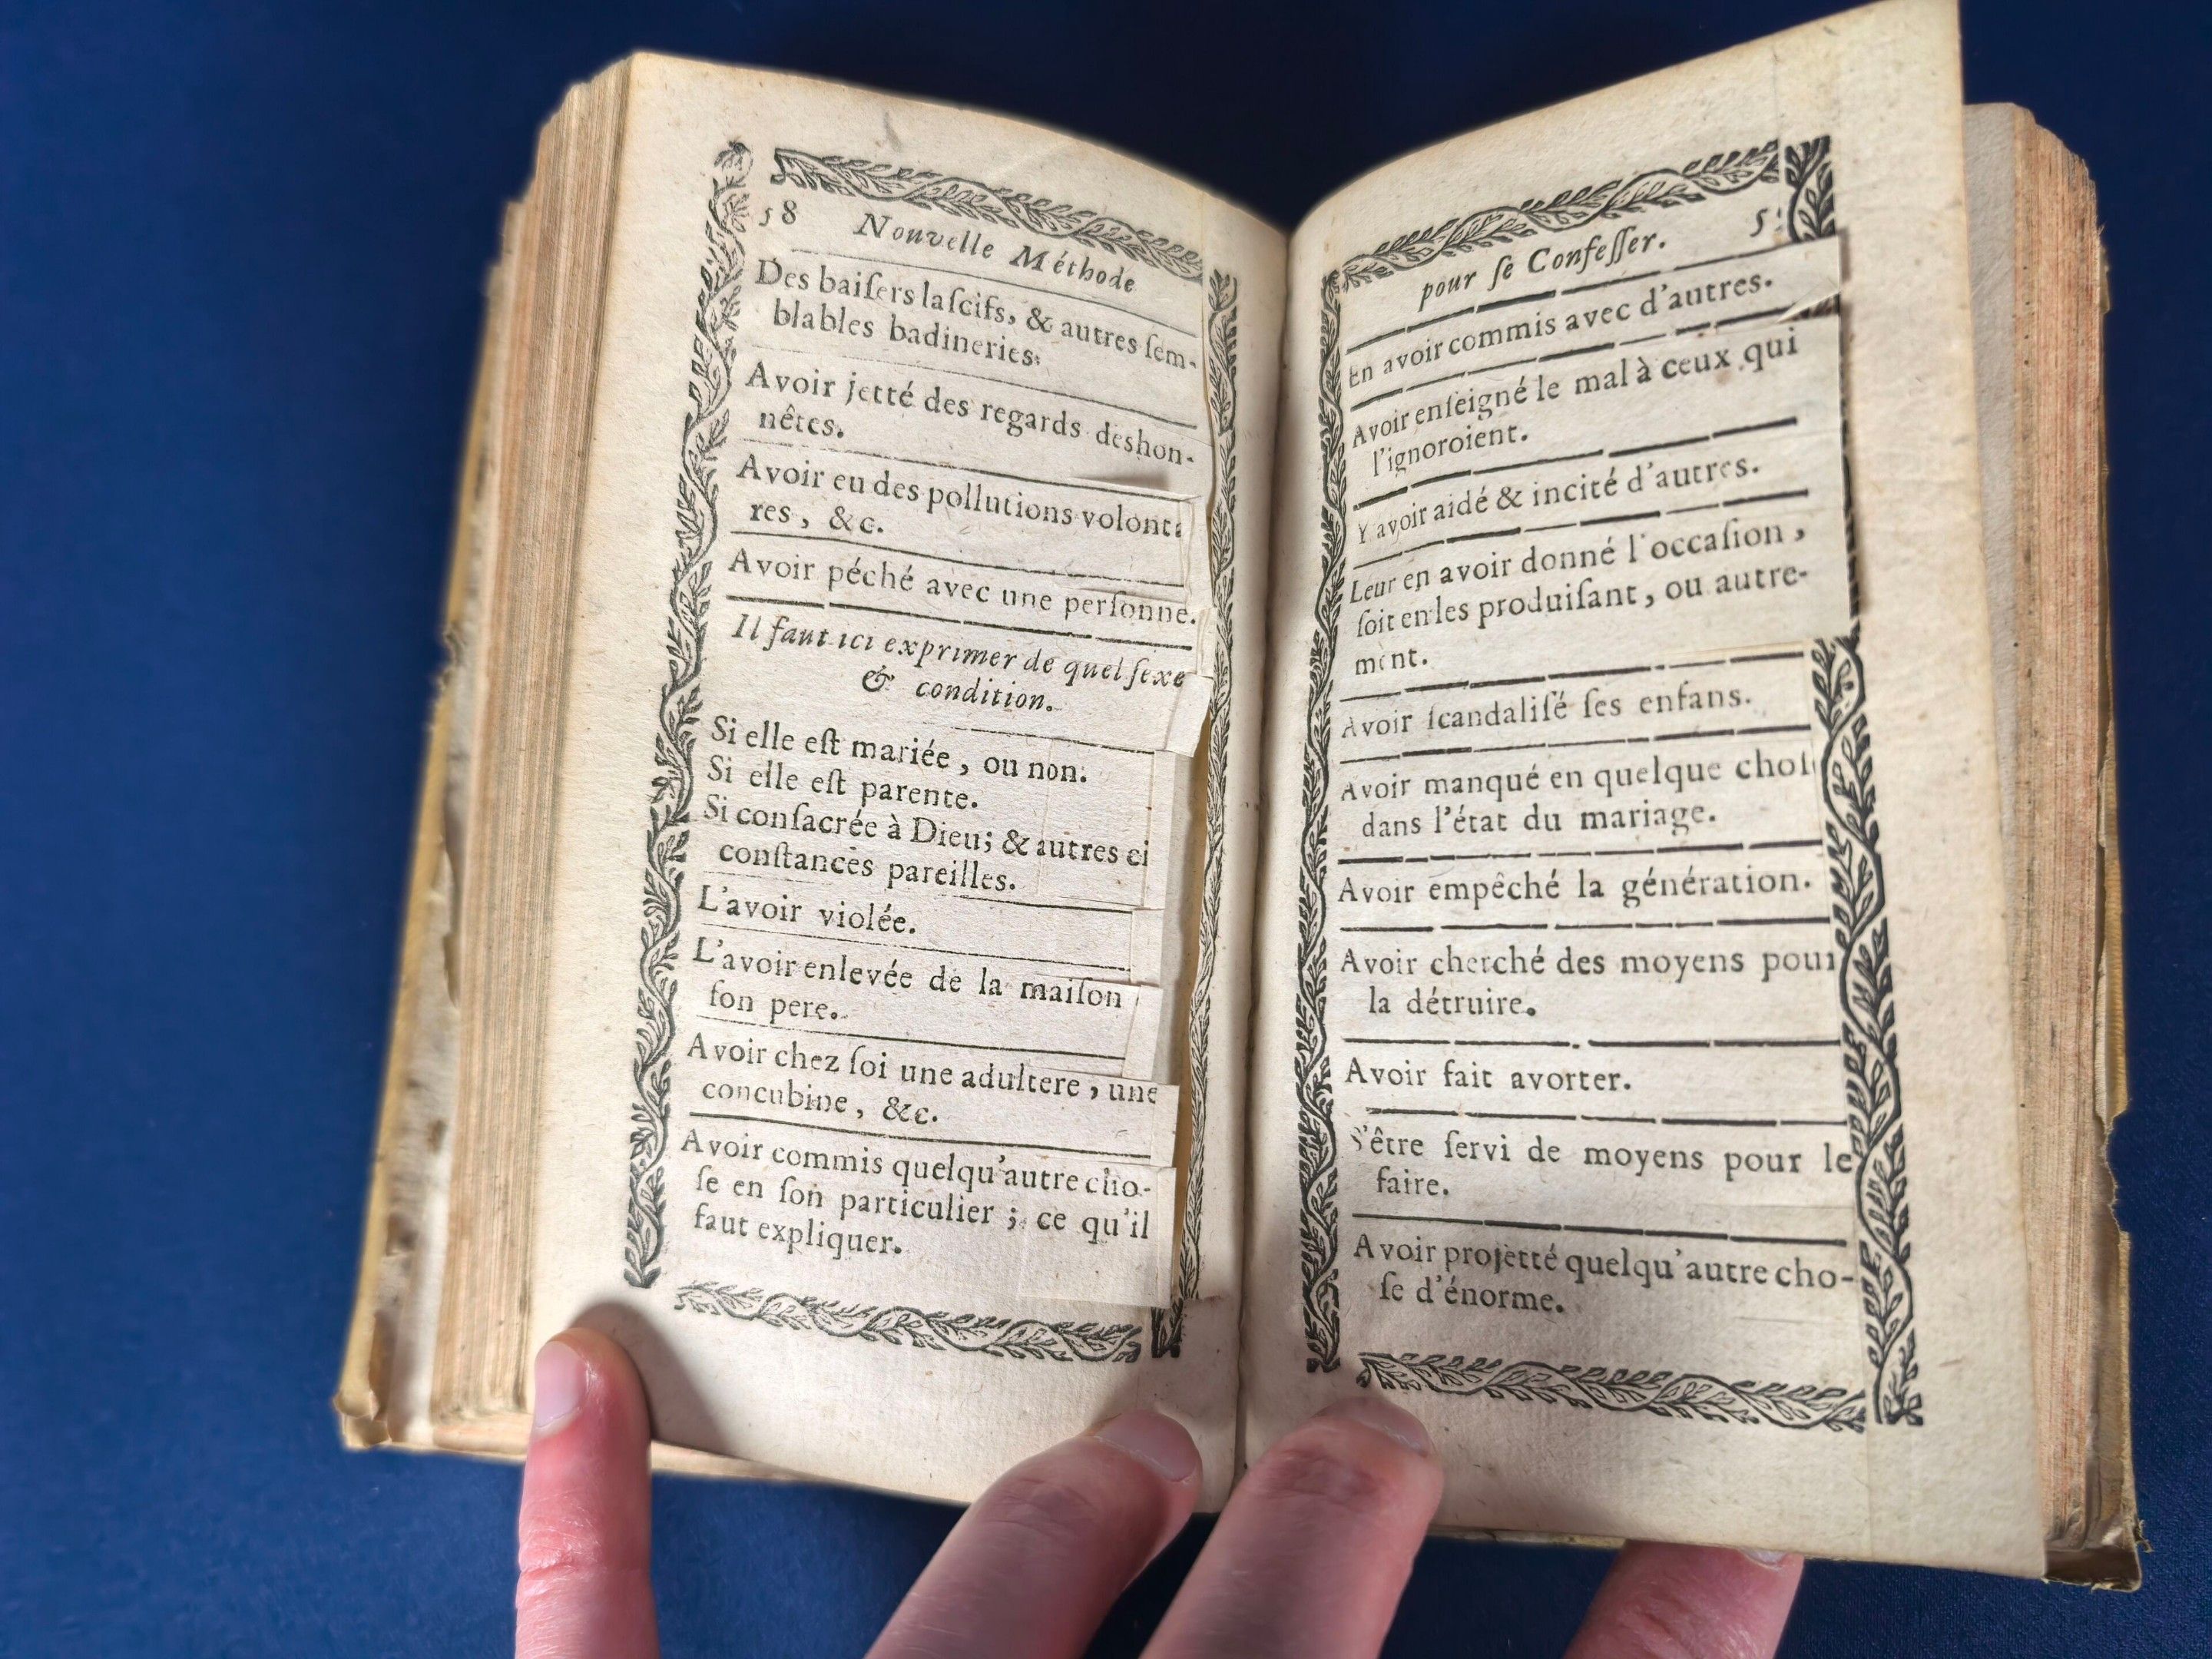 58 Nouvelle Méthode
Des baiſers laſcifs, & autres ſem-
blables badineries.
Avoir jetté des regards deshon-
nêtes.
Avoir eu des pollutions volont
res, &c.
Avoir péché avec une perſonne.
Il faut ici exprimer de quel ſexe
& condition.
Si elle eſt mariée, ou non.
Si elle eſt parente.
Si conſacrée à Dieu; & autres ci
conſtances pareilles.
L'avoir violée.
L'avoir enlevée de la maiſon
ſon pere.
Avoir chez ſoi une adultere, une
concubine, &c.
Avoir commis quelqu'autre cho-
ſe en ſon particulier; ce qu'il
faut expliquer.
pour ſe Confeſſer. 5
En avoir commis avec d'autres.
Avoir enſeigné le mal à ceux qui
l'ignoroient.
Y avoir aidé & incité d'autres.
Leur en avoir donné l'occaſion,
ſoit en les produiſant, ou autre-
ment.
Avoir ſcandaliſé ſes enfans.
Avoir manqué en quelque choſ
dans l'état du mariage.
Avoir empêché la génération.
Avoir cherché des moyens pour
la détruire.
Avoir fait avorter.
S'être ſervi de moyens pour le
faire.
Avoir projetté quelqu'autre cho-
ſe d'énorme.